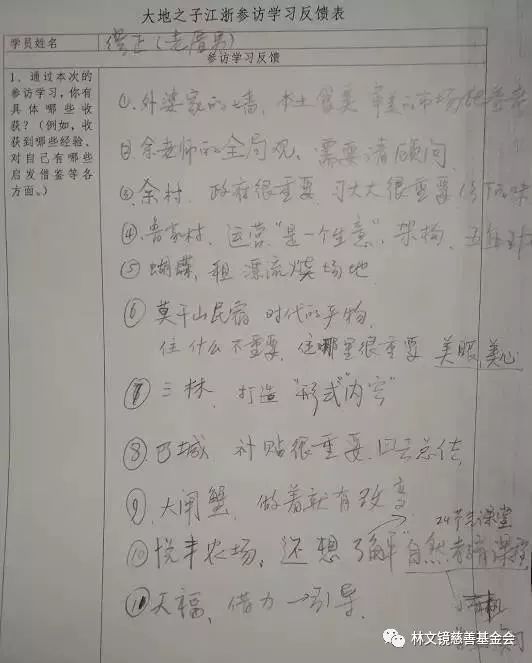 大地之子江浙参访学习反馈表
学员姓名
参访学习反馈
1、通过本次的
参访学习，你有
具体哪些收
获？（例如，收
获到哪些经验、
对自己有哪些
启发借鉴等各
方面。）
①外婆家的墙、本土 审美 市场
② 余老师的全局观、需要请顾问
③余村、政府很重要 习大大很重要
④鲁家村、运营"是一个生意"、架构、
⑤ 蝴蝶、租 漂流 场地
⑥ 莫干山民宿 时代的产物
住什么不重要、住哪里很重要 美眼、美心
⑦ 三林、打造"形式""内容"
⑧巴城 补贴很重要、回去总结
⑨、大闸蟹、做着就有
24节气课堂
⑩悦丰农场、还想了解"自然教育课程"
⑪天福、借力→引导
林文镜慈善基金会